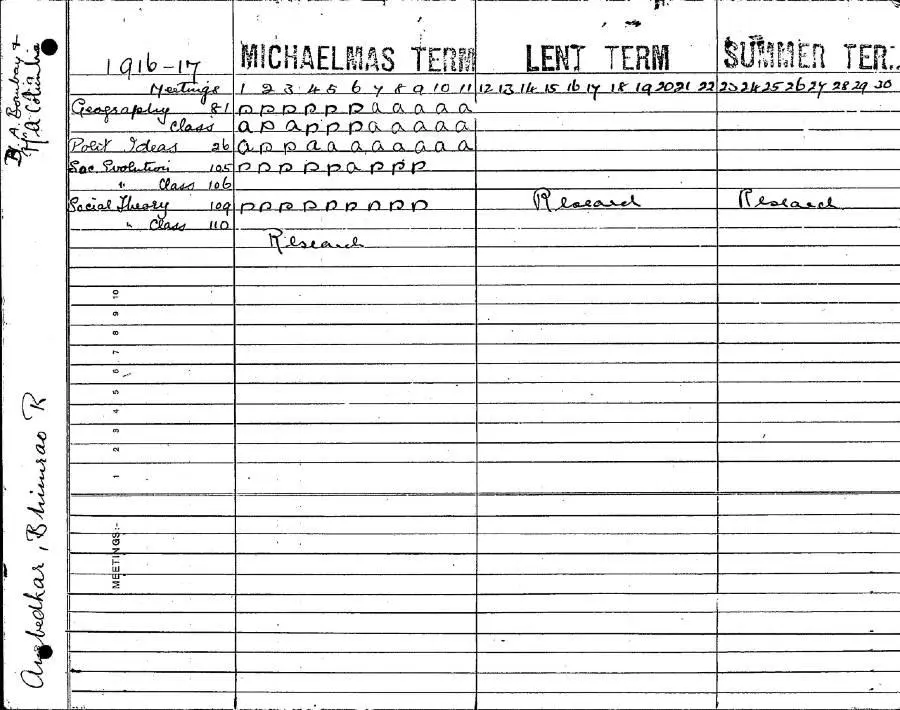 B.A. Bombay &
M.A. Columbia
Ambedkar, Bhimrao R
1916-17 MICHAELMAS TERM LENT TERM SUMMER TER
Meetings 1 2 3 4 5 6 7 8 9 10 11 12 13 14 15 16 17 18 19 20 21 22 23 24 25 26 27 28 29 30
Geography 81 p p p p p p a a a a a
Class a p a p p p a a a a a
Polit Ideas 26 a p p a a a a a a a a
Soc. Evolution 105 p p p p p a p p p
" Class 106
Social Theory 109 p p p p p p p p p Research Research
" Class 110
Research
10
9
8
7
6
5
4
3
2
1
MEETINGS:-